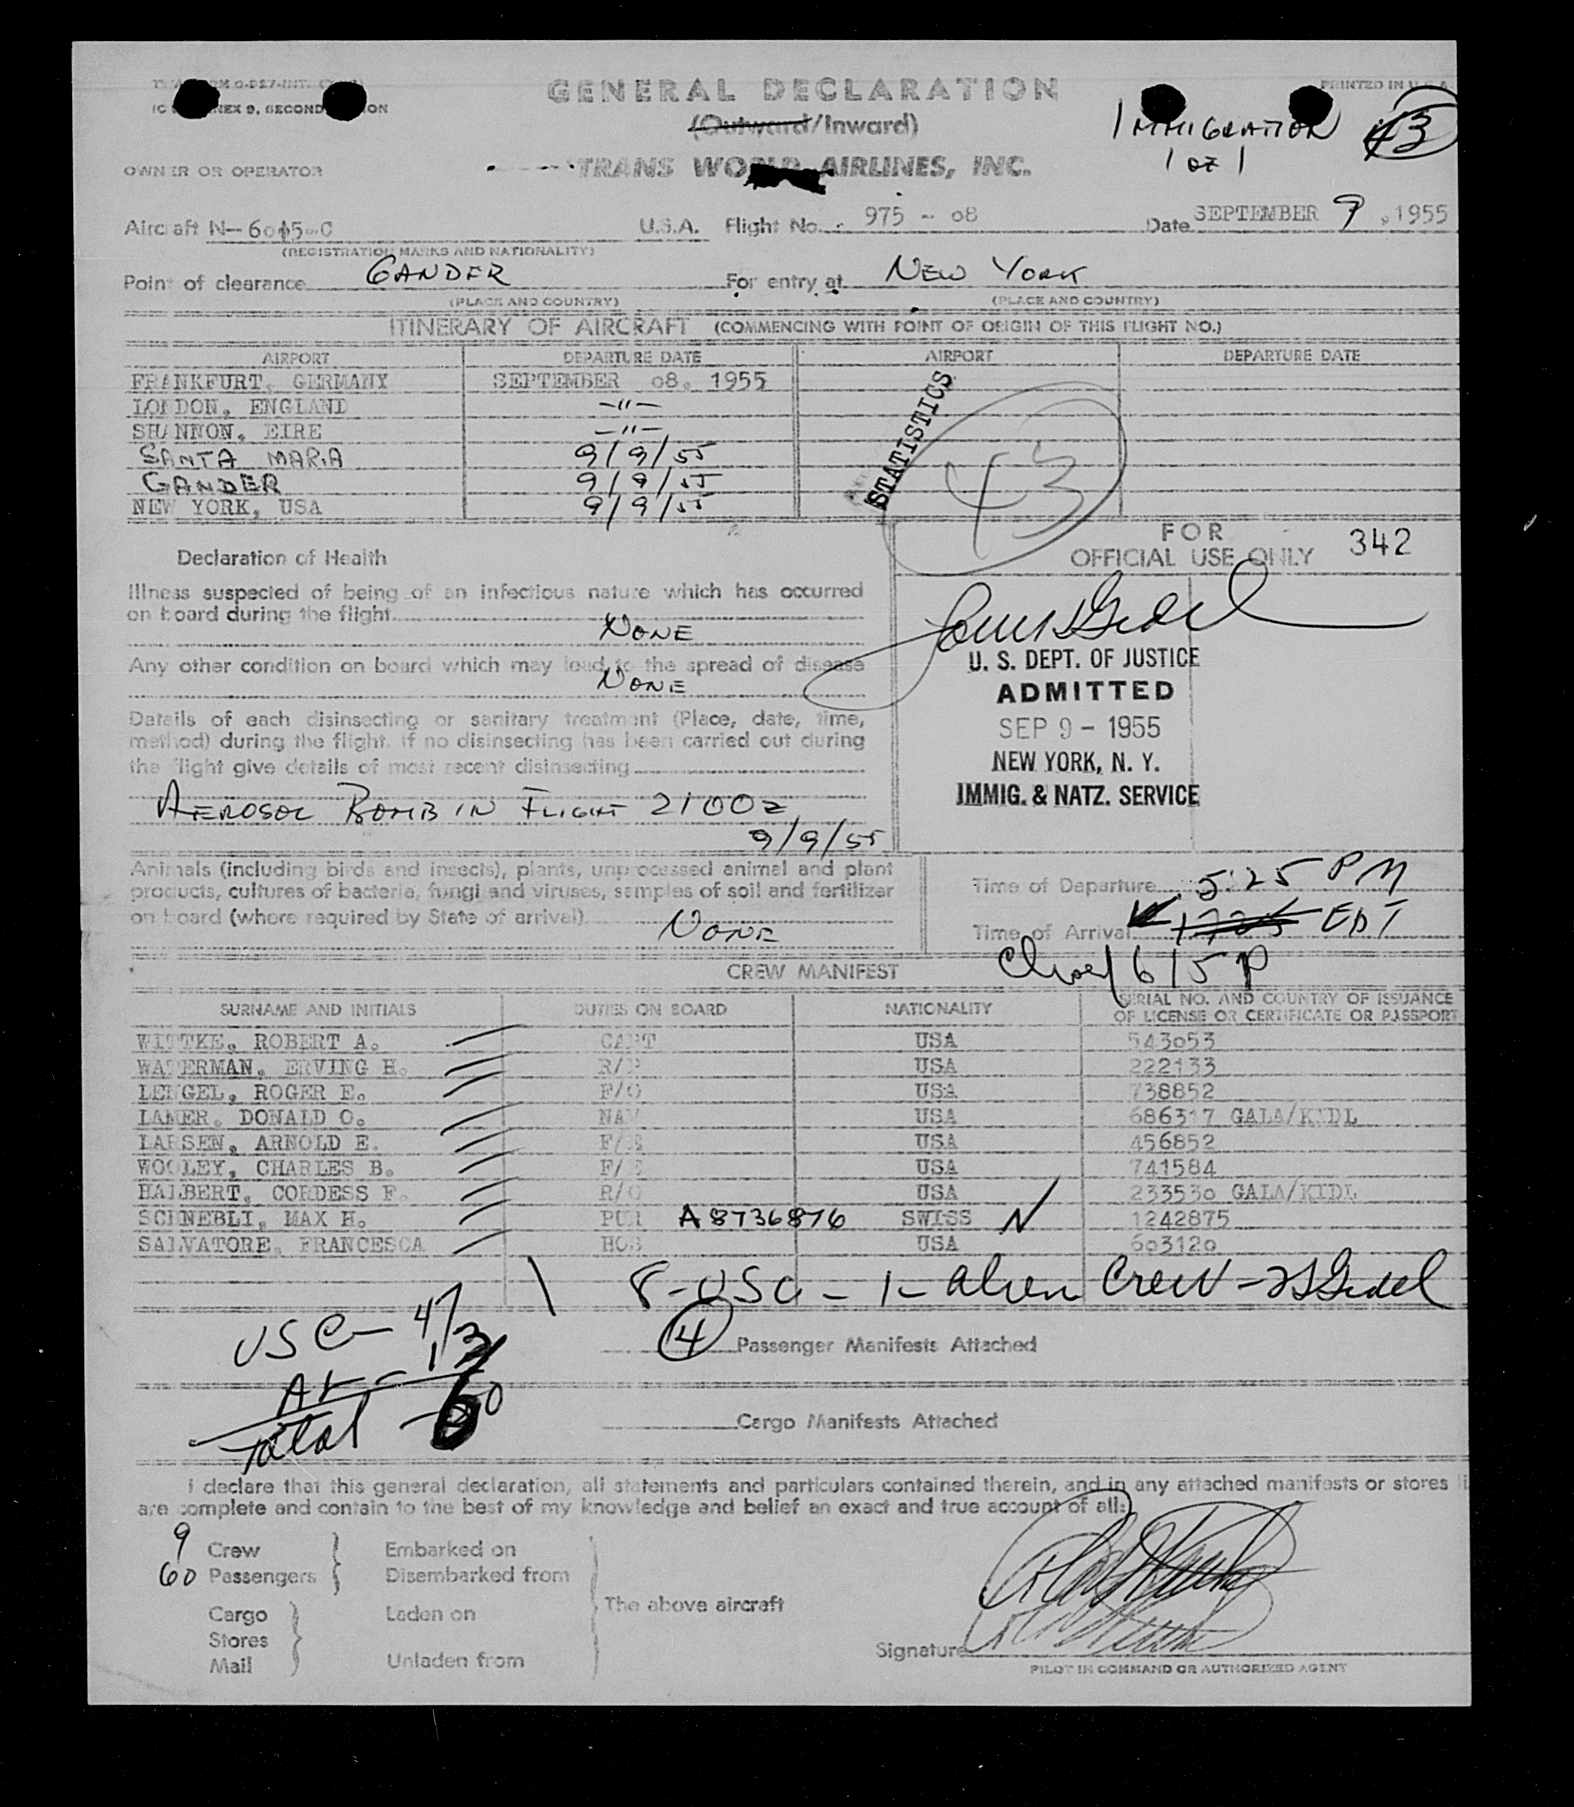 GENERAL DECLARATION
PRINTED IN U S A
(Outward/Inward)
IMMIGRATION 43
1 OF 1
OWNER OR OPERATOR TRANS WORLD AIRLINES, INC.
Aircraft U.S.A. Flight No. 975 - 08 Date SEPTEMBER 9, 1955
(REGISTRATION MARKS AND NATIONALITY)
Point of clearance GANDER For entry at NEW YORK
(PLACE AND COUNTRY) (PLACE AND COUNTRY)
ITINERARY OF AIRCRAFT (COMMENCING WITH POINT OF ORIGIN OF THIS FLIGHT NO.)
AIRPORT DEPARTURE DATE AIRPORT DEPARTURE DATE
FRANKFURT, GERMANY SEPTEMBER 08, 1955
LONDON, ENGLAND -"-
SHANNON, EIRE -"-
SANTA MARIA 9/9/55
GANDER 9/9/55
NEW YORK, USA 9/9/55
STATISTICS
43
FOR
OFFICIAL USE ONLY 342
Declaration of Health
Illness suspected of being of an infectious nature which has occurred
on board during the flight
NONE
Any other condition on board which may lead to the spread of disease
NONE
Details of each disinsecting or sanitary treatment (Place, date, time,
method) during the flight. If no disinsecting has been carried out during
the flight give details of most recent disinsecting
AEROSOL BOMB IN FLIGHT 2100Z
9/9/55
U. S. DEPT. OF JUSTICE
ADMITTED
SEP 9 - 1955
NEW YORK, N. Y.
IMMIG. & NATZ. SERVICE
Animals (including birds and insects), plants, unprocessed animal and plant
products, cultures of bacteria, fungi and viruses, samples of soil and fertilizer
on board (where required by State of arrival)
NONE
Time of Departure 5:25 PM
Time of Arrival 1725 EDT
615P
CREW MANIFEST
SURNAME AND INITIALS DUTIES ON BOARD NATIONALITY SERIAL NO. AND COUNTRY OF ISSUANCE
OF LICENSE OR CERTIFICATE OR PASSPORT
WITTKE, ROBERT A. CAPT USA 543053
WATERMAN, ERVING H. USA 222133
LENGEL, ROGER E. F/O USA 738852
LAMER, DONALD O. NAV USA 686317 GALA/KIDL
LARSEN, ARNOLD E. F/E USA 456852
WOOLEY, CHARLES B. F/E USA 741584
HALBERT, CORDESS F. R/O USA 233530 GALA/KIDL
SCHNEBLI, MAX H. PUR A8736876 SWISS 1242875
SALVATORE, FRANCESCA HOS USA 603120
8-USC - 1- alien Crew -
USC- 47
13
Total - 60
4 Passenger Manifests Attached
Cargo Manifests Attached
I declare that this general declaration, all statements and particulars contained therein, and in any attached manifests or stores li
are complete and contain to the best of my knowledge and belief an exact and true account of all:
9 Crew Embarked on
60 Passengers Disembarked from
The above aircraft
Cargo Laden on
Stores
Mail Unladen from
Signature
PILOT IN COMMAND OR AUTHORIZED AGENT